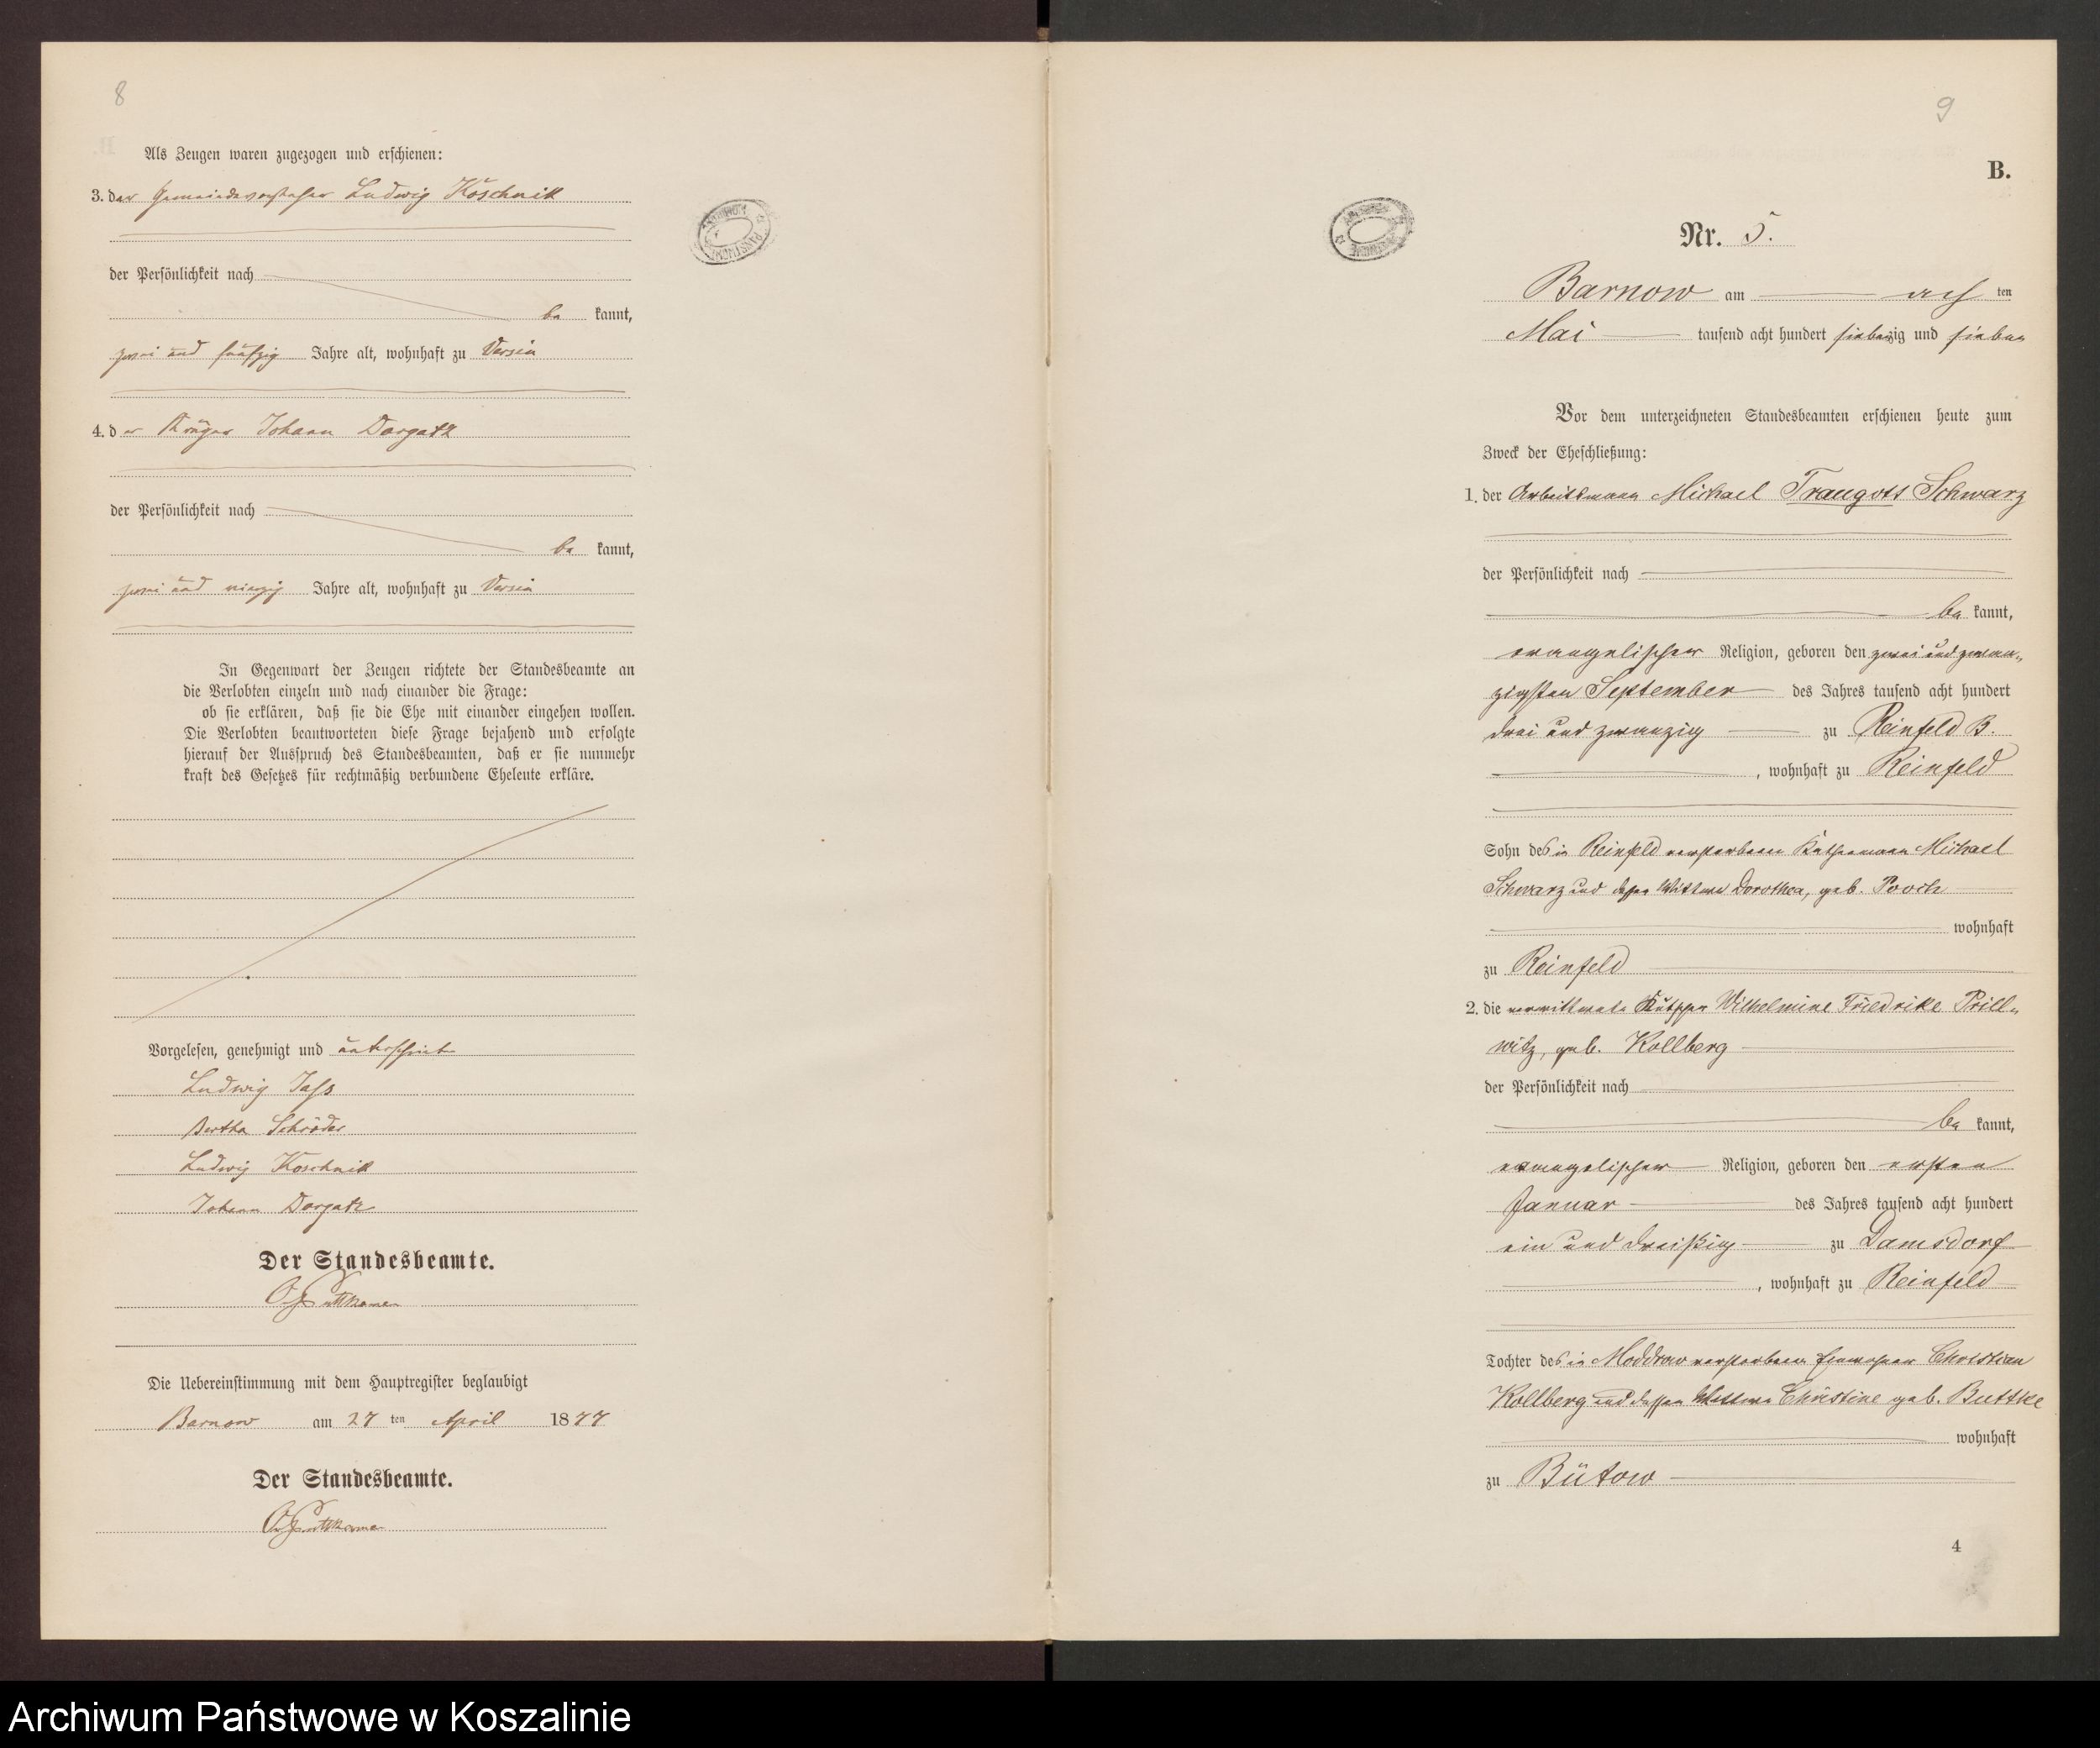 8
Als Zeugen waren zugezogen und erschienen:
3. der Gemeindevorsteher Ludwig Koschnik
der Persönlichkeit nach
be kannt,
zwei und fünfzig Jahre alt, wohnhaft zu Versin
4. der Krüger Johann Dargatz
der Persönlichkeit nach
be kannt,
zwei und vierzig Jahre alt, wohnhaft zu Versin
In Gegenwart der Zeugen richtete der Standesbeamte an
die Verlobten einzeln und nach einander die Frage:
ob sie erklären, daß sie die Ehe mit einander eingehen wollen.
Die Verlobten beantworteten diese Frage bejahend und erfolgte
hierauf der Ausspruch des Standesbeamten, daß er sie nunmehr
kraft des Gesetzes für rechtmäßig verbundene Eheleute erkläre.
Vorgelesen, genehmigt und unterschrieben
Ludwig Jass
Bertha Schröder
Ludwig Koschnik
Johann Dargatz
Der Standesbeamte.
Puttkamer
Die Uebereinstimmung mit dem Hauptregister beglaubigt
Barnow am 27 ten April 1877
Der Standesbeamte.
Puttkamer
9
B.
Nr. 5.
Barnow am ach ten
Mai tausend acht hundert siebenzig und sieben
Vor dem unterzeichneten Standesbeamten erschienen heute zum
Zweck der Eheschließung:
1. der Arbeitsmann Michael Traugott Schwarz
der Persönlichkeit nach
be kannt,
evangelischer Religion, geboren den zwei und zwan-
zigsten September des Jahres tausend acht hundert
drei und zwanzig zu Reinfeld B.
, wohnhaft zu Reinfeld
Sohn des in Reinfeld verstorbenen Käthnermann Michael
Schwarz und dessen Wittwe Dorothea, geb. Pooch
wohnhaft
zu Reinfeld
2. die verwittwete Wilhelmine Friedrike Prill-
witz, geb. Kollberg
der Persönlichkeit nach
be kannt,
evangelischer Religion, geboren den ersten
Januar des Jahres tausend acht hundert
ein und dreißig zu Damsdorf
, wohnhaft zu Reinfeld
Tochter des in Moddrow verstorbenen Einwohner Christian
Kollberg und dessen Wittwe Christine geb. Buttke
wohnhaft
zu Bütow
4
Archiwum Państwowe w Koszalinie